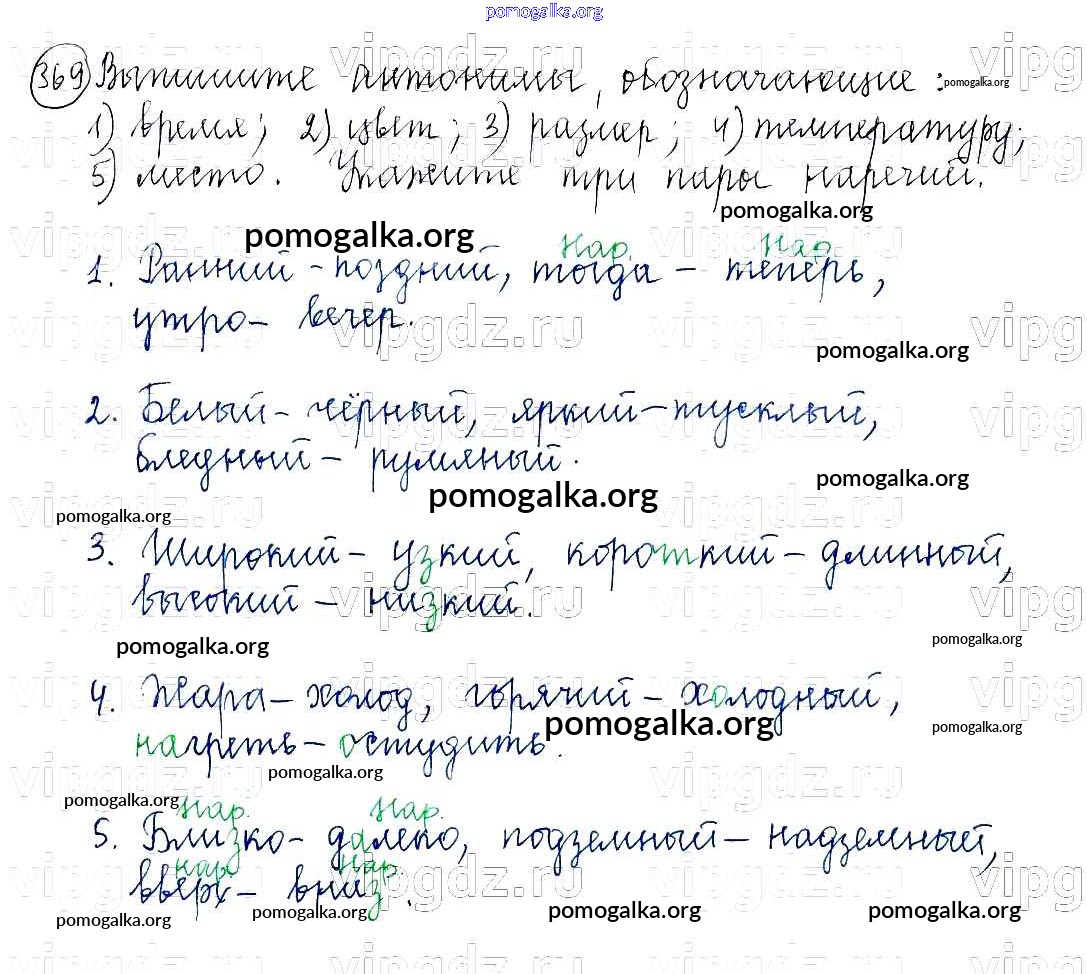 pomogalka.org
369 Выпишите антонимы, обозначающие: pomogalka.org
1) время; 2) цвет; 3) размер; 4) температуру;
5) место. Укажите три пары наречий.
pomogalka.org
pomogalka.org нар. нар.
1. Ранний - поздний, тогда - теперь,
утро - вечер.
vipgdz.ru vipgdz.ru vipgdz.ru vipg
pomogalka.org
2. Белый - чёрный, яркий - тусклый,
бледный - румяный.
pomogalka.org
pomogalka.org
pomogalka.org
3. Широкий - узкий, короткий - длинный,
высокий - низкий.
pomogalka.org
pomogalka.org
4. Жара - холод, горячий - холодный,
pomogalka.org
pomogalka.org
нагреть - остудить.
pomogalka.org
pomogalka.org
нар. нар.
5. Близко - далеко, подземный - надземный,
нар. нар.
вверх - вниз.
pomogalka.org pomogalka.org pomogalka.org pomogalka.org